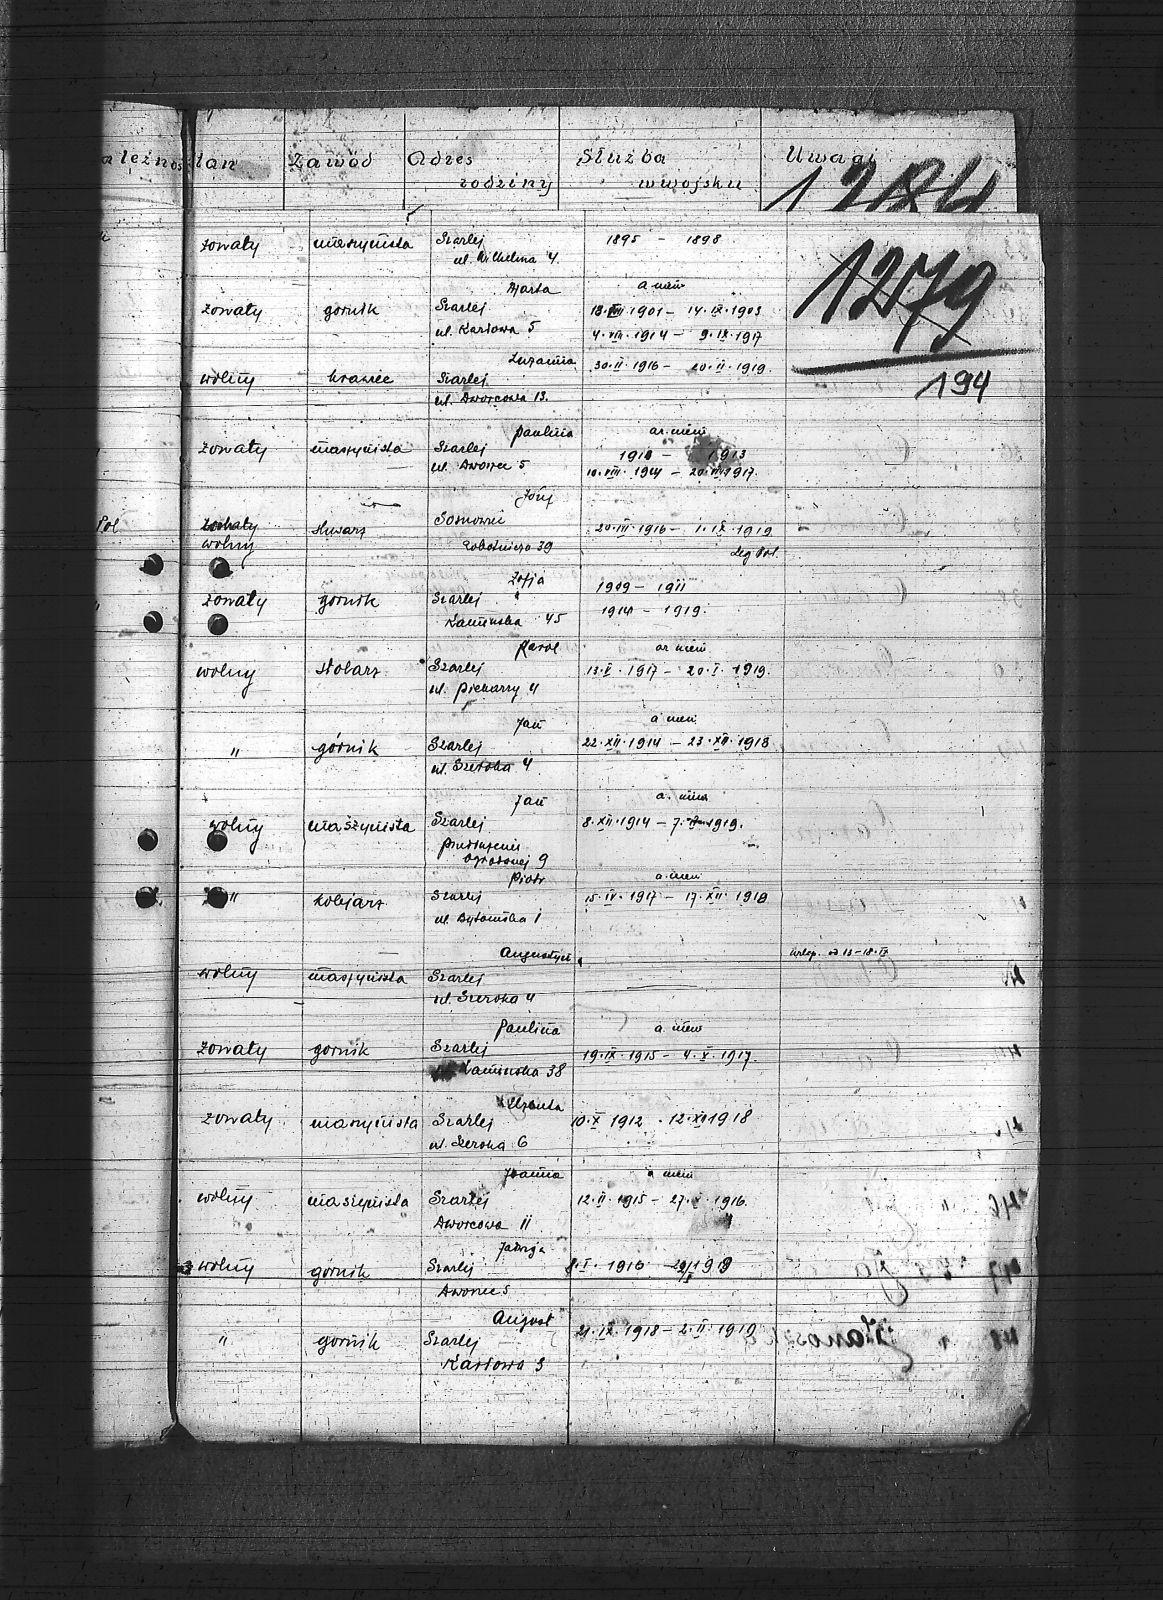 Stan Zawód Adres Służba Uwagi
rodziny w wojsku 1284
żonaty maszynista Szarlej 1895 - 1898
ul. Wilhelma 4.
1279
Marta a niem
żonaty górnik Szarlej 1901 - 14.IX.1903
ul. Karłowa 5 4.VIII.1914 - 9.IX.1917
Zuzanna 30.II.1916 - 20.II.1919.
wolny krawiec Szarlej
194
ul. Dworcowa 13.
Paulina ar. niem
żonaty maszynista Szarlej 1910 - 1913
ul. Dworc 5 10.VIII.1914 - 1917.
Józef
Pol żonaty Sosnowic 20.III.1916 - 1.IX.1919
wolny ślusarz Robotnicza 39 Leg Pol.
Zofja 1909 - 1911
żonaty górnik Szarlej
Kamińska 45 1914 - 1919.
Karol ar niem
wolny stolarz Szarlej 13.V.1917 - 20.I.1919.
ul. Piekarry 4
Jan a niem
" górnik Szarlej 22.XII.1914 - 23.XII.1918
ul. Szeroka 4
Jan a. niem
wolny maszynista Szarlej 8.XII.1914 - 7. 1919.
ogrodowej 9
Piotr a. niem
" kolejarz Szarlej 15.IV.1917 - 17.XII.1918
ul. Bytomska 1
Augustyn urlop. od 13-18.IV
wolny maszynista Szarlej
ul. Szeroka 4
Paulina a. niem
żonaty górnik Szarlej 19.IX.1915 - 4.X.1917.
Kamińska 38
Urszula
żonaty maszynista Szarlej 10.X 1912 - 12.XI 1918
ul. Szeroka 6
Joanna a niem
wolny maszynista Szarlej 12.II.1915 - 27.X.1916.
Dworcowa 11
Jadwiga
wolny górnik Szarlej 8.I.1916
Dworc 5
August 21.IX.1918 - 2.II.1919
" górnik Szarlej
Karłowa 3